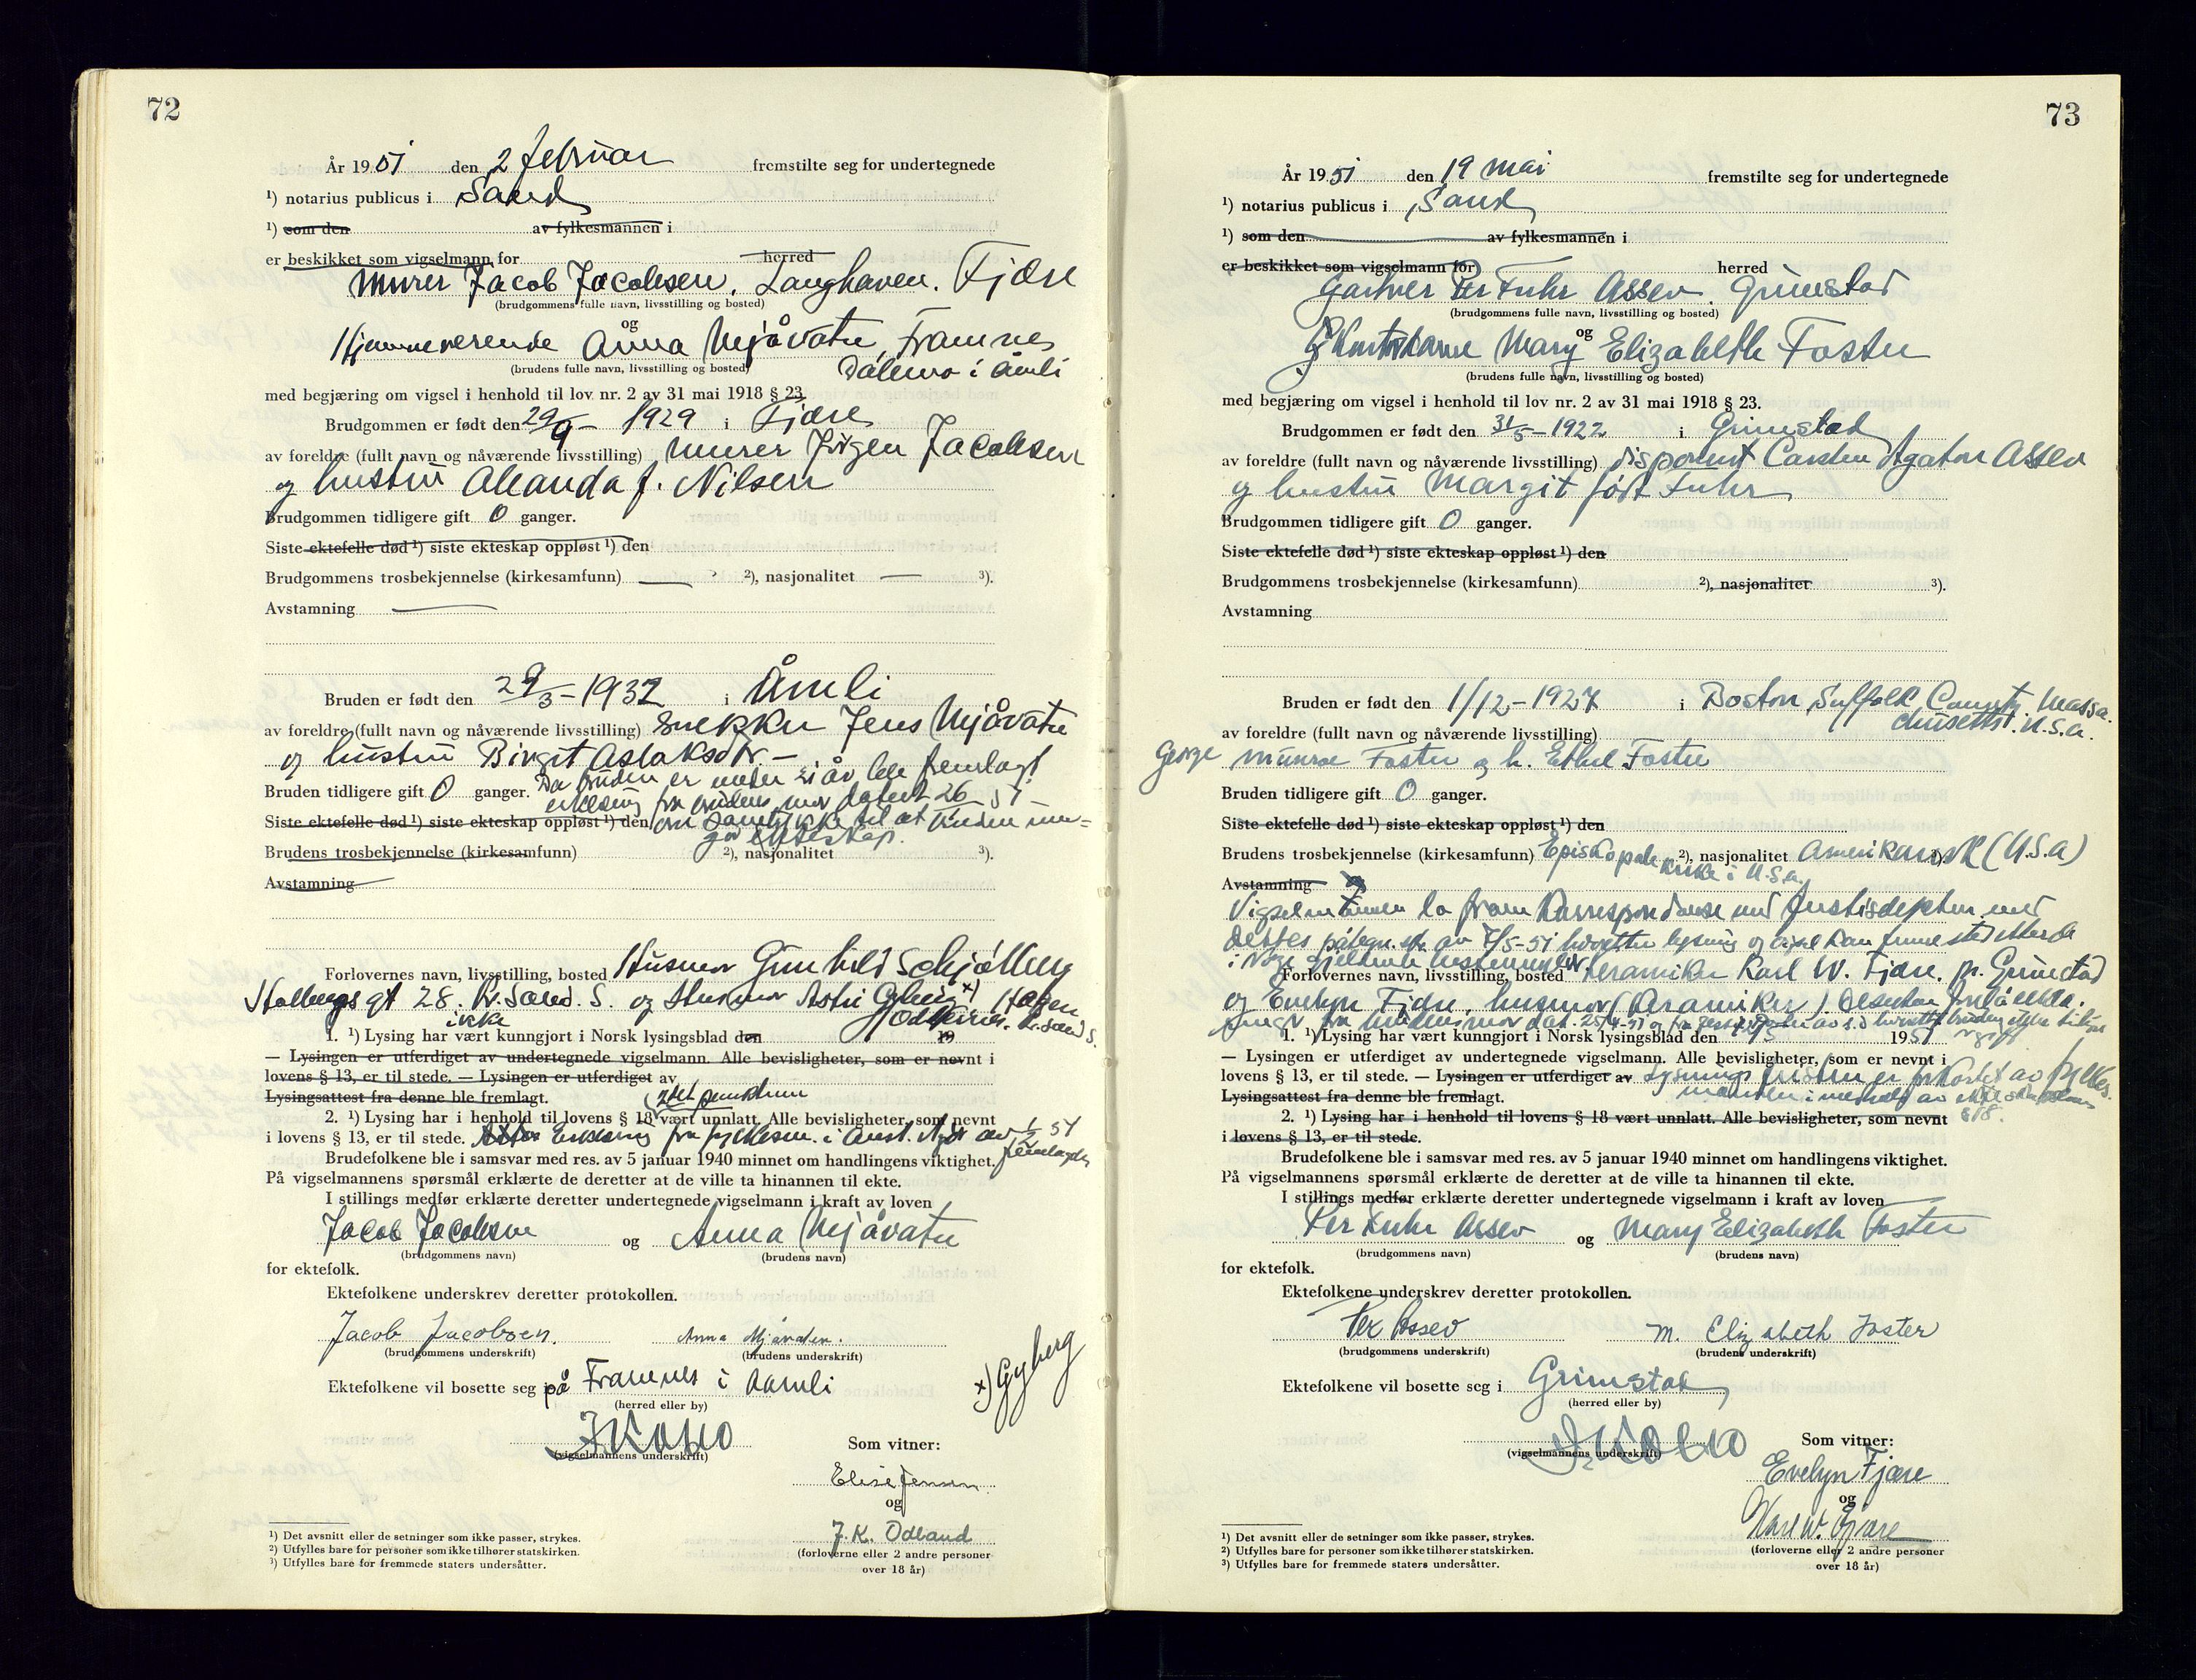 72
År 1951 den 2 februar fremstilte seg for undertegnede
¹) notarius publicus i Sand
¹) som den av fylkesmannen i
er beskikket som vigselmann for herred
Murer Jacob Jacobsen, Langhaven, Fjære
(brudgommens fulle navn, livsstilling og bosted)
og
Hjemmeværende Anna Mjåvatn, Framnes
(brudens fulle navn, livsstilling og bosted)
Dølemo i Åmli
med begjæring om vigsel i henhold til lov nr. 2 av 31 mai 1918 § 23.
Brudgommen er født den 29/9 - 1929 i Fjære
av foreldre (fullt navn og nåværende livsstilling) murer Jørgen Jacobsen
og hustru Alvanda f. Nilsen
Brudgommen tidligere gift 0 ganger.
Siste ektefelle død ¹) siste ekteskap oppløst ¹) den
Brudgommens trosbekjennelse (kirkesamfunn) — ²), nasjonalitet — ³).
Avstamning —
Bruden er født den 29/3 - 1932 i Åmli
av foreldre (fullt navn og nåværende livsstilling) snekker Jens Mjåvatn
og hustru Birgit Aslaksdtr. -
Bruden tidligere gift 0 ganger. Da bruden er under 21 år, ble fremlagt
erklæring fra brudens mor datert 26/1 51
Siste ektefelle død ¹) siste ekteskap oppløst ¹) den om samtykke til at bruden inn=
går ekteskap.
Brudens trosbekjennelse (kirkesamfunn) ²), nasjonalitet ³).
Avstamning
Forlovernes navn, livsstilling, bosted Husmor Gunhild Schjølberg
gt 28. Kr.sand. S. og Husmor Astri Gyberg x) Hagen
Kr.sand S.
ikke
1. ¹) Lysing har vært kunngjort i Norsk lysingsblad den 19
— Lysingen er utferdiget av undertegnede vigselmann. Alle bevisligheter, som er nevnt i
lovens § 13, er til stede. — Lysingen er utferdiget av
Lysingsattest fra denne ble fremlagt.
(2det punktum
2. ¹) Lysing har i henhold til lovens § 18 vært unnlatt. Alle bevisligheter, som nevnt
i lovens § 13, er til stede. Erklæring fra fylkesm. i Aust-Agder av 1/2 51
fremlagdes
Brudefolkene ble i samsvar med res. av 5 januar 1940 minnet om handlingens viktighet.
På vigselmannens spørsmål erklærte de deretter at de ville ta hinannen til ekte.
I stillings medfør erklærte deretter undertegnede vigselmann i kraft av loven
Jacob Jacobsen og Anna Mjåvatn
(brudgommens navn) (brudens navn)
for ektefolk.
Ektefolkene underskrev deretter protokollen.
Jacob Jacobsen. Anna Mjåvatn.
(brudgommens underskrift) (brudens underskrift)
x) Gyberg
Ektefolkene vil bosette seg på Framnes i Aamli
(herred eller by)
(vigselmannens underskrift)
Som vitner:
Elise Jensen
og
J.K. Odland
(forloverne eller 2 andre personer
over 18 år)
¹) Det avsnitt eller de setninger som ikke passer, strykes.
²) Utfylles bare for personer som ikke tilhører statskirken.
³) Utfylles bare for fremmede staters undersåtter.
73
År 1951 den 19 mai fremstilte seg for undertegnede
¹) notarius publicus i Sand
¹) som den av fylkesmannen i
er beskikket som vigselmann for herred
Gartner Per Fuhr Assev, Grimstad
(brudgommens fulle navn, livsstilling og bosted)
og
Mary Elizabeth Foster
(brudens fulle navn, livsstilling og bosted)
med begjæring om vigsel i henhold til lov nr. 2 av 31 mai 1918 § 23.
Brudgommen er født den 31/5 - 1922 i Grimstad
av foreldre (fullt navn og nåværende livsstilling) disponent Carsten Agaton Assev
og hustru Margit født Fuhr
Brudgommen tidligere gift 0 ganger.
Siste ektefelle død ¹) siste ekteskap oppløst ¹) den
Brudgommens trosbekjennelse (kirkesamfunn) ²), nasjonalitet ³).
Avstamning
Bruden er født den 1/12 - 1927 i Boston, Suffolk County, Massa.
chusetts. U.S.A.
av foreldre (fullt navn og nåværende livsstilling)
George Munroe Foster og h. Ethel Foster
Bruden tidligere gift 0 ganger.
Siste ektefelle død ¹) siste ekteskap oppløst ¹) den
Brudens trosbekjennelse (kirkesamfunn) Episkopale ²), nasjonalitet Amerikansk (U.S.A)
kirke i U.S.A.
Avstamning
Vigselmannen la fram korrespondanse med Justisdeptm. med
dettes påtegn. av 8/5-51 hvoretter lysing og vigsel kan finne sted etter de
i Norge gjeldende bestemmelser
Forlovernes navn, livsstilling, bosted Keramiker Karl W. Fjære, pr. Grimstad
og Evelyn Fjære, husmor (Keramiker)
fra brudens mor dat. 25/4-51
1. ¹) Lysing har vært kunngjort i Norsk lysingsblad den 1951
— Lysingen er utferdiget av undertegnede vigselmann. Alle bevisligheter, som er nevnt i
lovens § 13, er til stede. — Lysingen er utferdiget av Lysningsfristen er forkortet av fylkes-
mannen i medhold av
§ 18.
Lysingsattest fra denne ble fremlagt.
2. ¹) Lysing har i henhold til lovens § 18 vært unnlatt. Alle bevisligheter, som nevnt
i lovens § 13, er til stede.
Brudefolkene ble i samsvar med res. av 5 januar 1940 minnet om handlingens viktighet.
På vigselmannens spørsmål erklærte de deretter at de ville ta hinannen til ekte.
I stillings medfør erklærte deretter undertegnede vigselmann i kraft av loven
Per Fuhr Assev og Mary Elizabeth Foster
(brudgommens navn) (brudens navn)
for ektefolk.
Ektefolkene underskrev deretter protokollen.
Per Assev M. Elizabeth Foster
(brudgommens underskrift) (brudens underskrift)
Ektefolkene vil bosette seg i Grimstad
(herred eller by)
(vigselmannens underskrift)
Som vitner:
Evelyn Fjære
og
Karl W. Fjære
(forloverne eller 2 andre personer
over 18 år)
¹) Det avsnitt eller de setninger som ikke passer, strykes.
²) Utfylles bare for personer som ikke tilhører statskirken.
³) Utfylles bare for fremmede staters undersåtter.